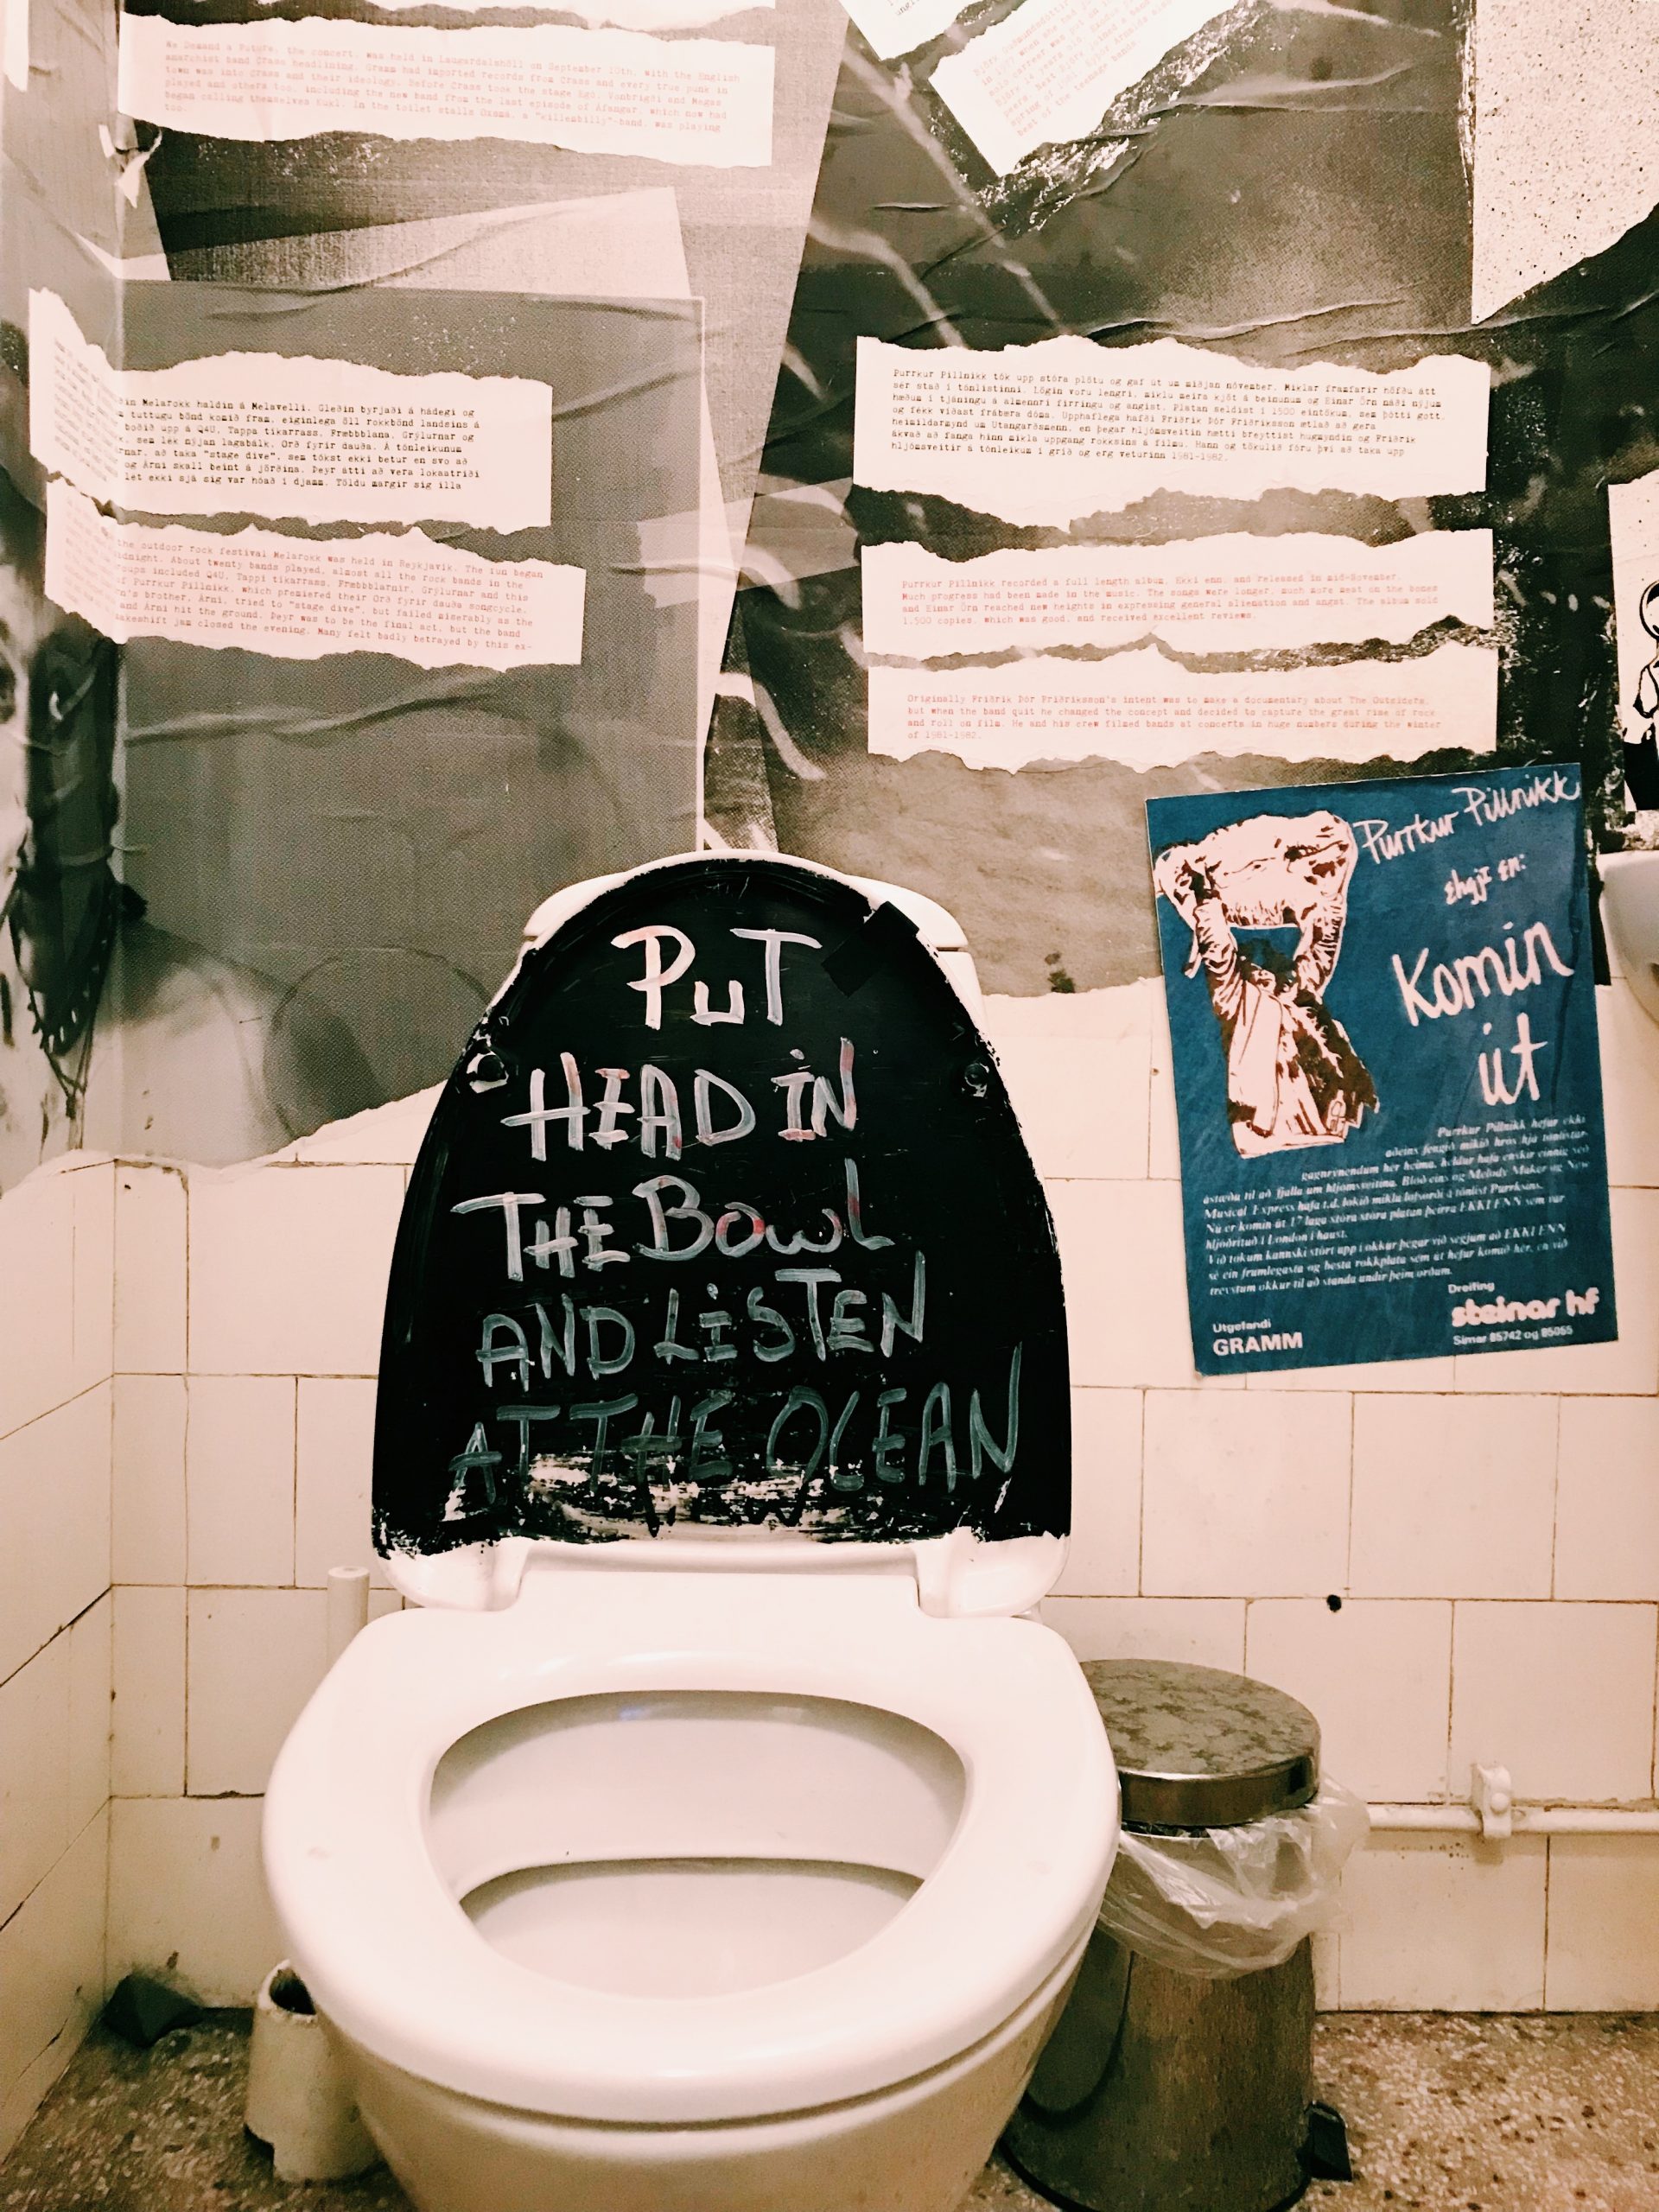 We Demand a Future, the concert, was held in Laugardalshöll on September 10th, with the English
anarchist band Crass headlining. Gramm had imported records from Crass and every true punk in
town was into Crass and their ideology. Before Crass took the stage Egó, Vonbrigði and Megas
played and others too, including the new band from the last episode of Áfangar, which now had
began calling themselves Kukl. In the toilet stalls Oxsmá, a "killembilly"-band, was playing
too.
Melarokk haldin á Melavelli. Gleðin byrjaði á hádegi og
tuttugu bönd komið fram, eiginlega öll rokkbönd landsins á
boðið upp á Q4U, Tappa tíkarrass, Fræbbblana, Grýlurnar og
sem lék nýjan lagabálk, Orð fyrir dauða. Á tónleikunum
að taka "stage dive", sem tókst ekki betur en svo að
og Árni skall beint á jörðina. Þeyr átti að vera lokaatriði
let ekki sjá sig var hóað í djamm. Töldu margir sig illa
the outdoor rock festival Melarokk was held in Reykjavík. The fun began
About twenty bands played, almost all the rock bands in the
included Q4U, Tappi tíkarrass, Fræbbblarnir, Grýlurnar and this
of Purrkur Pillnikk, which premiered their Orð fyrir dauða songcycle.
brother, Árni, tried to "stage dive", but failed miserably as the
and Árni hit the ground. Þeyr was to be the final act, but the band
jam closed the evening. Many felt badly betrayed by this ex-
Purrkur Pillnikk tók upp stóra plötu og gaf út um miðjan nóvember. Miklar framfarir höfðu átt
sér stað í tónlistinni. Lögin voru lengri, miklu meira kjöt á beinunum og Einar Örn náði nýjum
hæðum í tjáningu á almennri firringu og angist. Platan seldist í 1500 eintökum, sem þótti gott,
og fékk víðast frábæra dóma. Upphaflega hafði Friðrik Þór Friðriksson ætlað að gera
heimildarmynd um Utangarðsmenn, en þegar hljómsveitin hætti breyttist hugmyndin og Friðrik
ákvað að fanga hinn mikla uppgang rokksins á filmu. Hann og tökulið fóru því að taka upp
hljómsveitir á tónleikum í gríð og erg veturinn 1981-1982.
Purrkur Pillnikk recorded a full length album, Ekki enn, and released in mid-November.
Much progress had been made in the music. The songs were longer, much more meat on the bones
and Einar Örn reached new heights in expressing general alienation and angst. The album sold
1.500 copies, which was good, and received excellent reviews.
Originally Friðrik Þór Friðriksson's intent was to make a documentary about The Outsiders,
but when the band quit he changed the concept and decided to capture the great rise of rock
and roll on film. He and his crew filmed bands at concerts in huge numbers during the winter
of 1981-1982.
PuT
HEAD iN
THE BOWL
AND LiSTEN
AT THE OCEAN
Purrkur Pillnikk
ehgji en:
Komin
út
Purrkur Pillnikk hefur ekki
aðeins fengið mikið hrós hjá tónlistar-
gagnrýnendum hér heima, heldur hafa enskir einnig séð
ástæðu til að fjalla um hljómsveitina. Blöð eins og Melody Maker og New
Musical Express hafa t.d. lokið miklu lofsorði á tónlist Purrksins.
Nú er komin út 17 laga stóra stóra platan þeirra EKKI ENN sem var
hljóðrituð í London í haust.
Við tökum kannski stórt upp í okkur þegar við segjum að EKKI ENN
sé ein frumlegasta og besta rokkplata sem út hefur komið hér, en við
treystum okkur til að standa undir þeim orðum.
Útgefandi
GRAMM
Dreifing
steinar hf
Símar 85742 og 85055